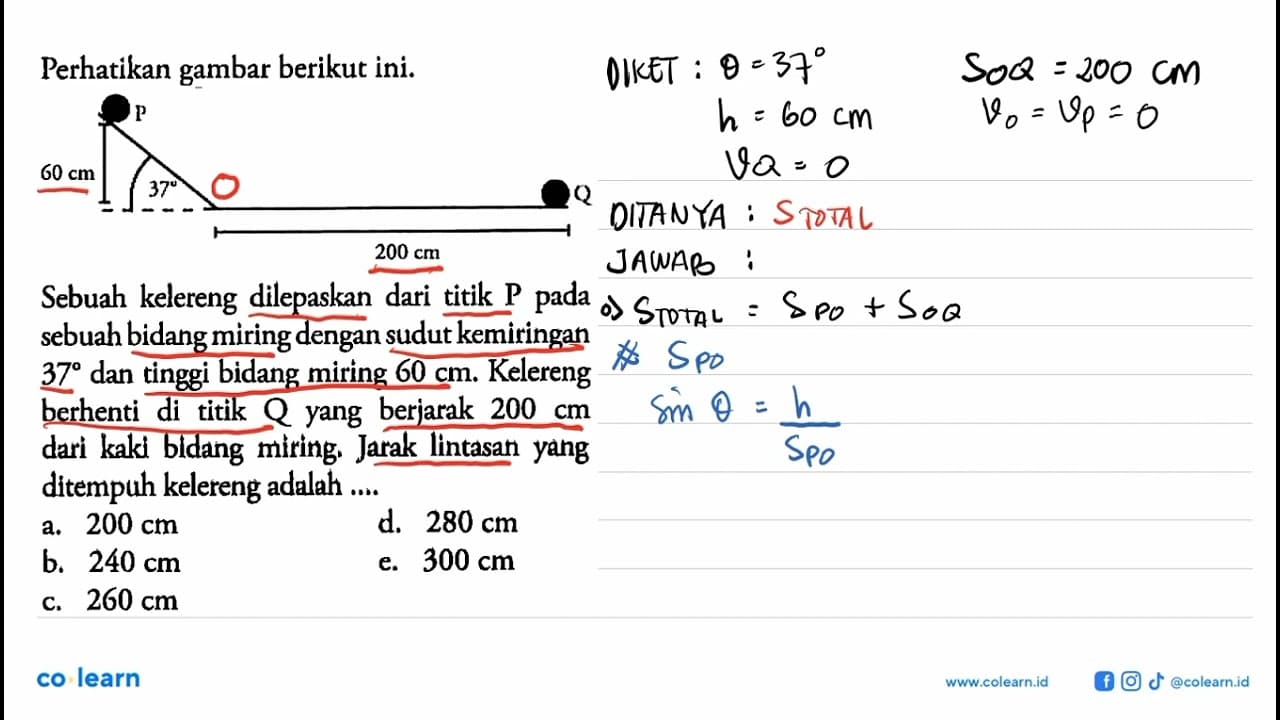 Perhatikan gambar berikut ini.
P
60 cm
37°
O
Q
200 cm
Sebuah kelereng dilepaskan dari titik P pada
sebuah bidang miring dengan sudut kemiringan
37° dan tinggi bidang miring 60 cm. Kelereng
berhenti di titik Q yang berjarak 200 cm
dari kaki bidang miring. Jarak lintasan yang
ditempuh kelereng adalah ....
a. 200 cm
b. 240 cm
c. 260 cm
d. 280 cm
e. 300 cm
DIKET : θ = 37°
h = 60 cm
VQ = 0
SOQ = 200 cm
V₀ = Vp = 0
DITANYA : STOTAL
JAWAB :
o) STOTAL = SPO + SOQ
# SPO
sin θ = h
SPO
co learn
www.colearn.id
@colearn.id